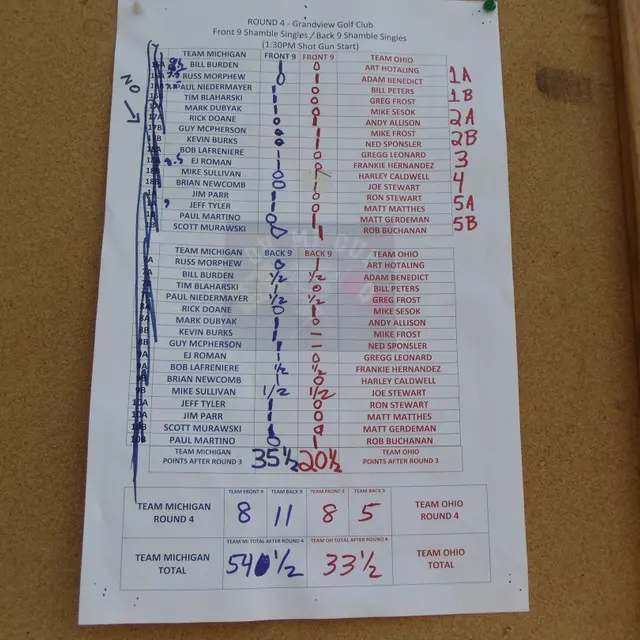 ROUND 4 - Grandview Golf Club
Front 9 Shamble Singles / Back 9 Shamble Singles
(1:30PM Shot Gun Start)
TEAM MICHIGAN FRONT 9 FRONT 9 TEAM OHIO
BILL BURDEN ART HOTALING
RUSS MORPHEW ADAM BENEDICT 1A
PAUL NIEDERMAYER BILL PETERS 1B
TIM BLAHARSKI GREG FROST
MARK DUBYAK MIKE SESOK 2A
RICK DOANE ANDY ALLISON
GUY MCPHERSON MIKE FROST 2B
KEVIN BURKS NED SPONSLER
BOB LAFRENIERE GREGG LEONARD 3
EJ ROMAN FRANKIE HERNANDEZ
MIKE SULLIVAN HARLEY CALDWELL 4
BRIAN NEWCOMB JOE STEWART
JIM PARR RON STEWART 5A
JEFF TYLER MATT MATTHES
PAUL MARTINO MATT GERDEMAN 5B
SCOTT MURAWSKI ROB BUCHANAN
NO
TEAM MICHIGAN BACK 9 BACK 9 TEAM OHIO
RUSS MORPHEW 0 1 ART HOTALING
BILL BURDEN 1/2 1/2 ADAM BENEDICT
TIM BLAHARSKI 1 0 BILL PETERS
PAUL NIEDERMAYER 1/2 1/2 GREG FROST
RICK DOANE 0 1 MIKE SESOK
MARK DUBYAK 1 0 ANDY ALLISON
KEVIN BURKS MIKE FROST
GUY MCPHERSON NED SPONSLER
EJ ROMAN 1 0 GREGG LEONARD
BOB LAFRENIERE 1/2 1/2 FRANKIE HERNANDEZ
BRIAN NEWCOMB 1 0 HARLEY CALDWELL
MIKE SULLIVAN 1/2 1/2 JOE STEWART
JEFF TYLER 1 0 RON STEWART
JIM PARR 1 0 MATT MATTHES
SCOTT MURAWSKI 1 0 MATT GERDEMAN
PAUL MARTINO 0 1 ROB BUCHANAN
TEAM MICHIGAN POINTS AFTER ROUND 3 35 1/2 20 1/2 TEAM OHIO POINTS AFTER ROUND 3
TEAM FRONT 9 TEAM BACK 9 TEAM FRONT 9 TEAM BACK 9
TEAM MICHIGAN ROUND 4 8 11 8 5 TEAM OHIO ROUND 4
TEAM MI TOTAL AFTER ROUND 4 TEAM OH TOTAL AFTER ROUND 4
TEAM MICHIGAN TOTAL 54 1/2 33 1/2 TEAM OHIO TOTAL